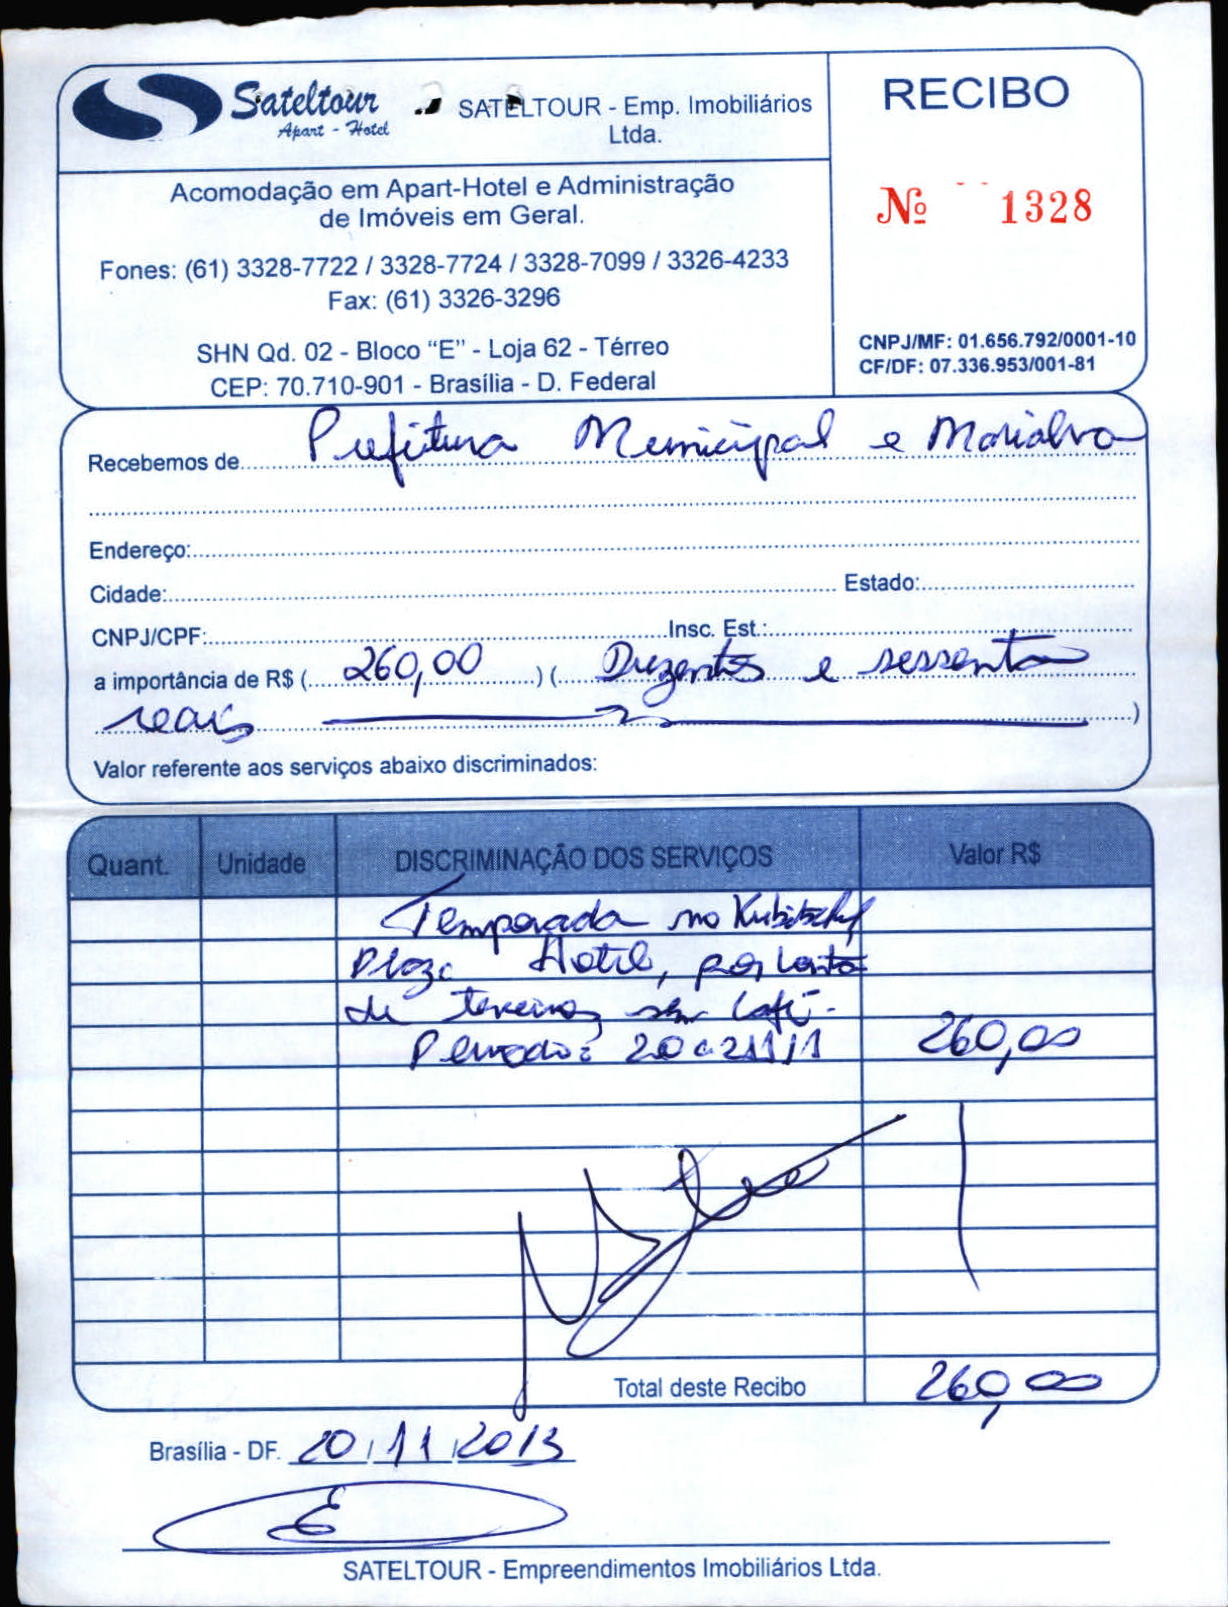 Sateltour
Apart - Hotel
SATELTOUR - Emp. Imobiliários
Ltda.
RECIBO
Acomodação em Apart-Hotel e Administração
de Imóveis em Geral.
Nº 1328
Fones: (61) 3328-7722 / 3328-7724 / 3328-7099 / 3326-4233
Fax: (61) 3326-3296
SHN Qd. 02 - Bloco "E" - Loja 62 - Térreo
CEP: 70.710-901 - Brasília - D. Federal
CNPJ/MF: 01.656.792/0001-10
CF/DF: 07.336.953/001-81
Recebemos de Prefeitura Municipal e Marialva
Endereço:
Cidade: Estado:
CNPJ/CPF: Insc. Est.:
a importância de R$ ( 260,00 ) ( Duzentos e sessenta
reais )
Valor referente aos serviços abaixo discriminados:
Quant. Unidade DISCRIMINAÇÃO DOS SERVIÇOS Valor R$
Temporada no Kubitschek
Plaza Hotel, por conta
de terceiros, sem café.
Período: 20 a 21/11 260,00
Total deste Recibo 260,00
Brasília - DF. 20 / 11 / 2013
SATELTOUR - Empreendimentos Imobiliários Ltda.